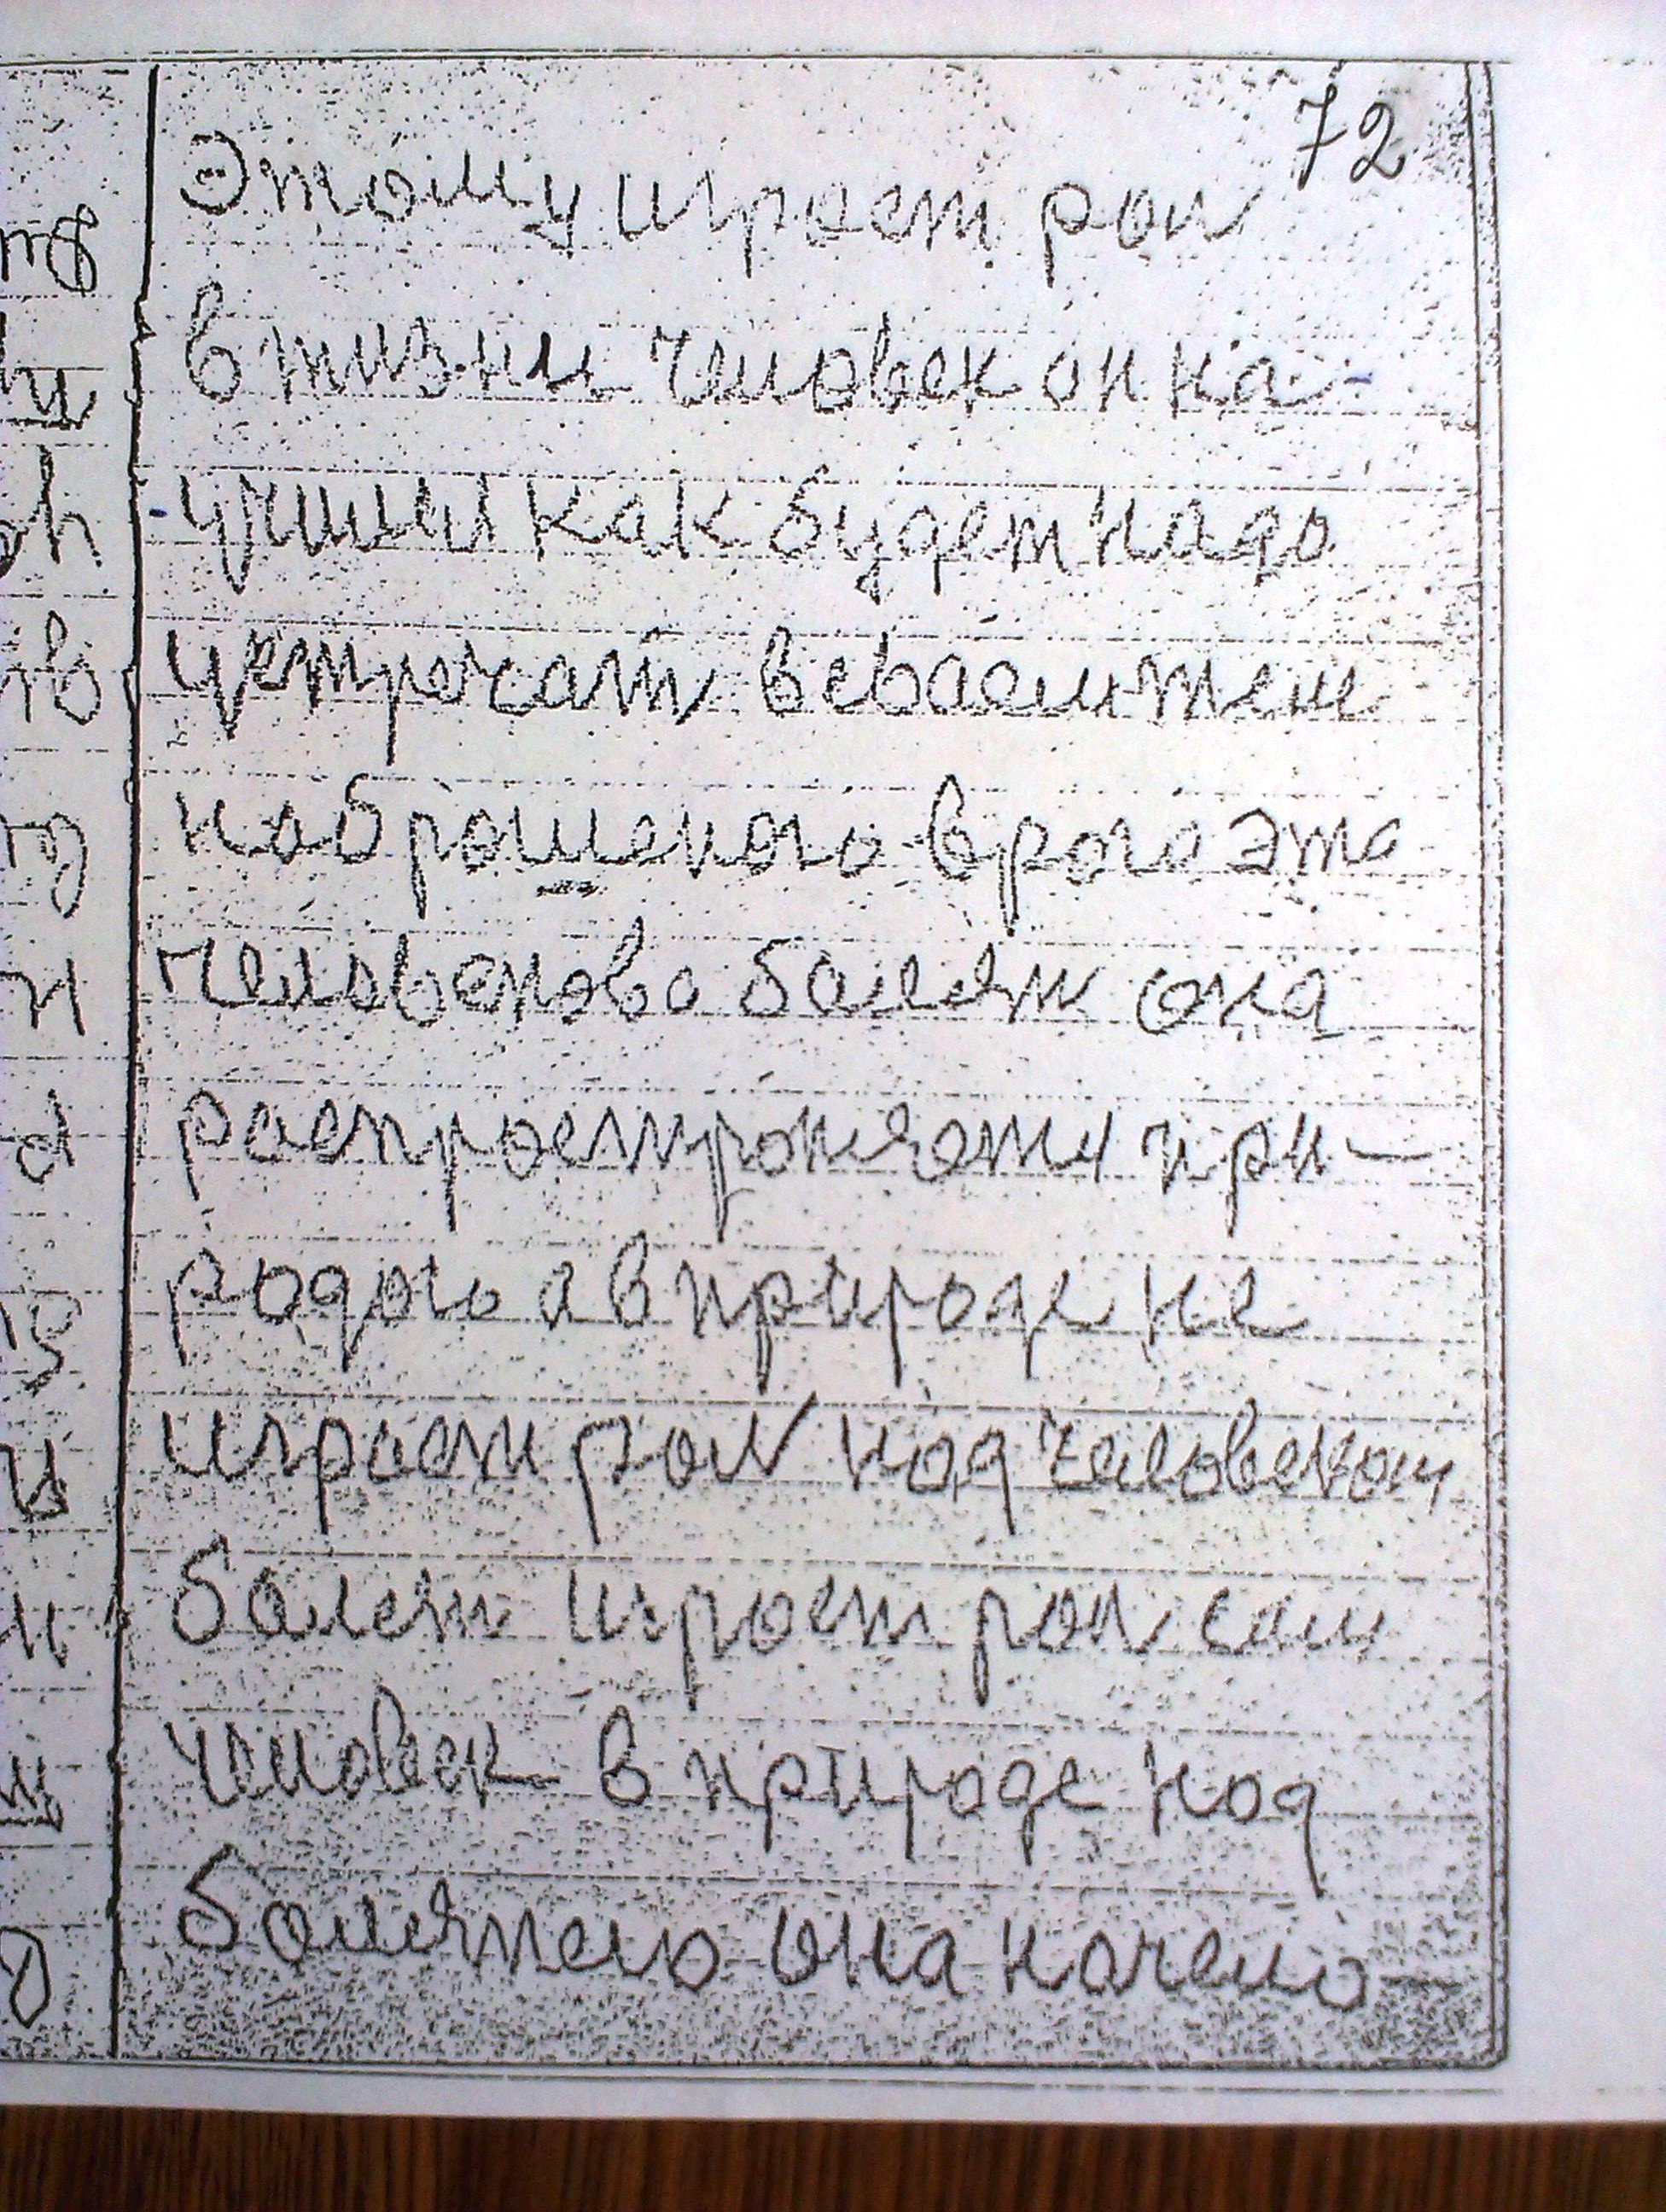 72
Этому играет рол
в жизни человек он на-
учились как будет надо
устречат
наброшеного врага эта
человеково болезн она
распространеты при-
родою а в природе не
играет рол над человеком
балет играет рол сам
человек в природе над
она